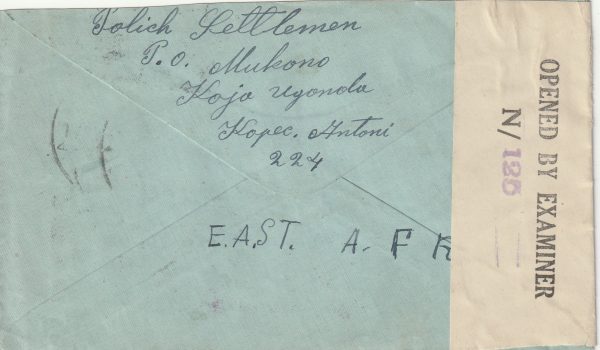 Polich Settlemen
P.O. Mukono
Koja Ugonda
Kopec. Antoni
224
E.A.ST. A-FR
OPENED BY EXAMINER
N/125